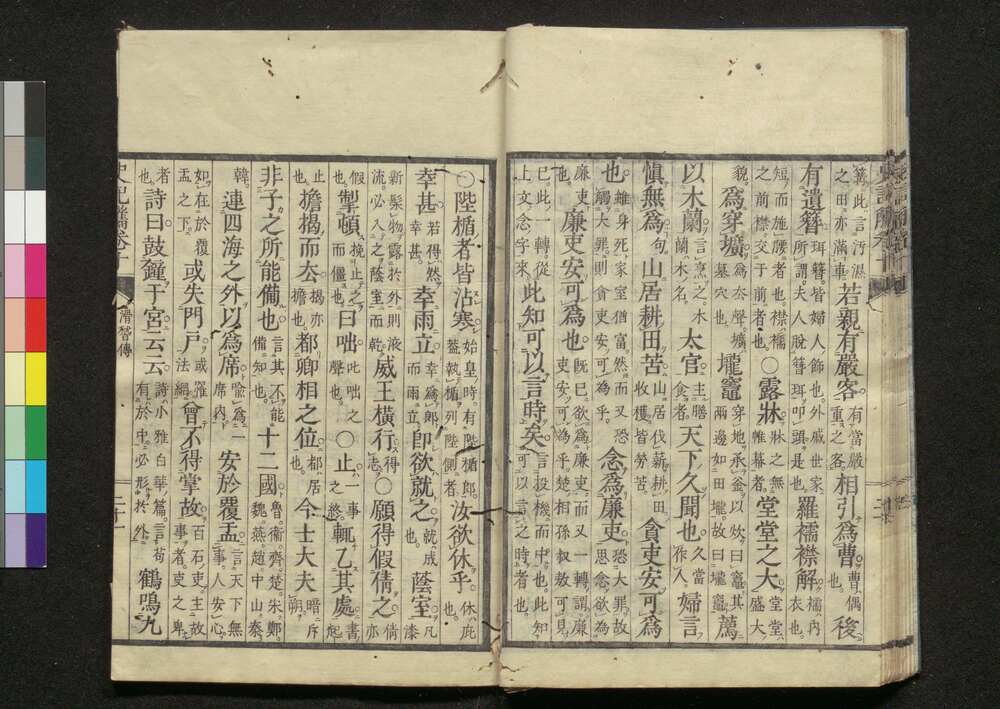 簍。此言汙濕之田亦滿車 若親有嚴客 有當嚴重之客 相引為曹 曹偶也。 後
有遺簪 珥簪皆婦人飾也。外戚世家所謂夫人脫簪珥叩頭是也。 羅襦襟解 襦内衣也。
短而施腰者也。襟襦之前襟交于前者也。 ○露牀 牀之無帷幕者。 堂堂之大 堂堂盛大
貌。 為穿壙 為去聲。壙墓穴也。 壠竈 穿地承釜以炊曰竈。其兩邊如田壠。故曰壠竈。 薦
以木蘭 言熏之。木蘭木名。 太官 主膳食者。 天下久聞也 久當作人。 婦言
慎無為 句。 山居耕田苦 山居伐薪耕田收穫皆勞苦。 貪吏安可為
也 雖身死家室猶富。然而又恐觸大罪。則貪吏安可為乎。 念為廉吏 恐大罪。故思念欲為
廉吏也。 廉吏安可為也 既已欲為廉吏。而又一轉謂廉吏安可為乎。楚相孫叔敖可見
已。此一轉從上文念字來。 此知可以言時矣 言投機而中也。此知可以言之時者也。
○陛楯者皆沾寒 始皇時有陛楯郎。蓋執楯列陛側者。 汝欲休乎 休庇也。
幸甚 若得然幸甚。 幸雨立 幸為郎而雨立。 卽欲就之 就成也。 蔭室 凡漆
新髹物露於外則液流。必入之蔭室而乾。 威王橫行 得志。 ○願得假倩之 倩亦
假也。 掣頓 挽止之而僵也。 曰咄 此咄之聲也。 ○止 一事之終 輒乙其處 書起
止 擔揭而去 揭亦擔也。 都卿相之位 都居也。 今士大夫 暗斥朔。
非子之所能備也 言其不能備知也。 十二國 魯衞齊楚。宋鄭魏燕趙中山秦
韓。 連四海之外以為席 喩為一席内。 安於覆盂 言天下無事人安心
如在於覆盂之下。 或失門戸 或罹法綱。 曾不得掌故 百石吏主故事者。吏之卑
者也。 詩曰鼓鐘于宮云云 詩小雅白華篇。言苟有於中必形於外。 鶴鳴九
史記觿卷十 滑稽傳 二十一